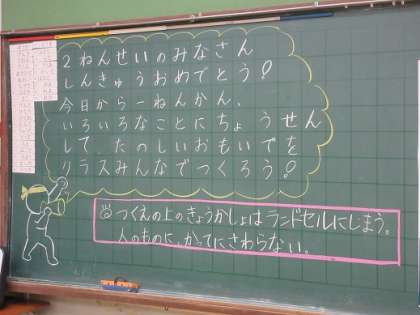 2ねんせいのみなさん
しんきゅうおめでとう!
今日から一ねんかん、
いろいろなことにちょうせん
して たのしいおもいでを
クラスみんなでつくろう!
つくえの上のきょうかしょはランドセルにしまう。
人のものに、かってにさわらない。